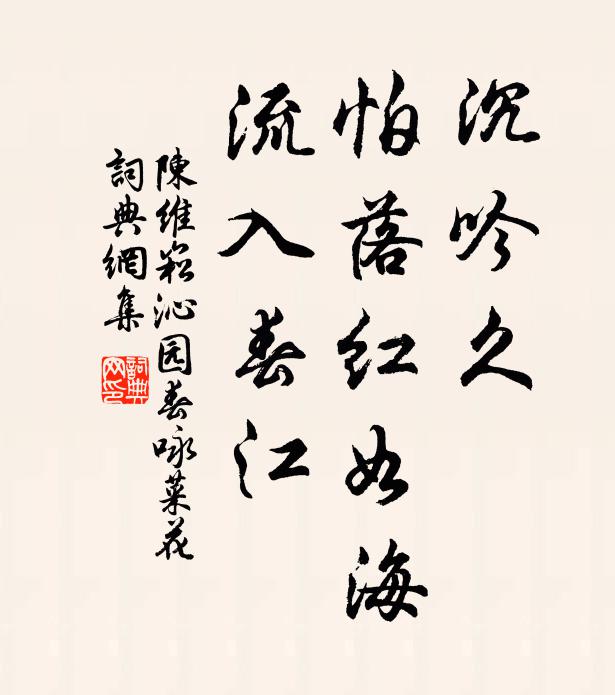 沉吟久
怕落红如海
流入春江
陳維崧沁园春咏菜花
詞典網集
詞典
网印